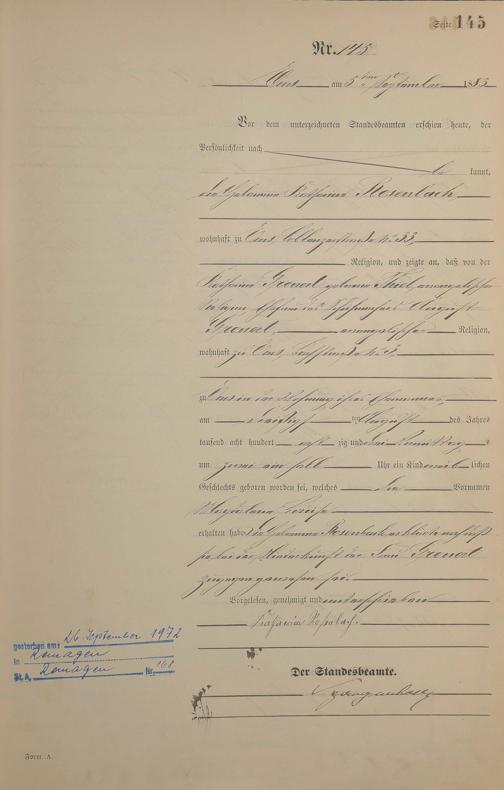 Seite 145
Nr. 145
Ems am 5ten September 1883
Vor dem unterzeichneten Standesbeamten erschien heute, der
Persönlichkeit nach
be kannt,
die Hebamme Katharina Rosenbach
wohnhaft zu Ems, Coblenzerstraße No 33,
Religion, und zeigte an, daß von der
Katharina geborene Thiel, evangelischer
Religion, Ehefrau des Schuhmachers August
evangelischer Religion,
wohnhaft zu Ems,
zu Ems in der Wohnung ihres Ehemannes,
am August des Jahres
tausend acht hundert acht zig und drei
um Uhr ein Kind weib lichen
Geschlechts geboren worden sei, welches die Vornamen
Magdalena Louise
erhalten habe. Die Hebamme Rosenbach erklärte, daß
sie bei der Niederkunft der Frau
zugegen gewesen sei.
Vorgelesen, genehmigt und unterschrieben
Katharina Rosenbach.
Der Standesbeamte.
gestorben am: 26. September 1972
in Remagen
St. A. Remagen Nr. 168
Form. A.